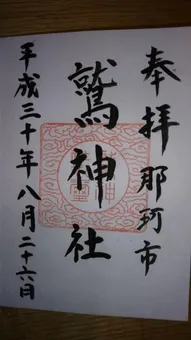 奉拝 那珂市
鷲神社
平成三十年八月二十六日